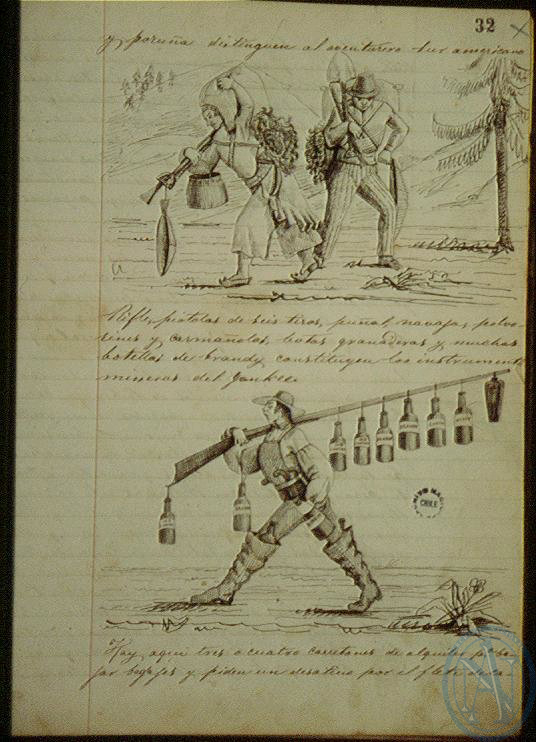 32
y poruña distinguen al aventurero sur americano
Rifle, pistolas de seis tiros, puñal, navajas, polvo-
rines y carmañolas, botas granaderas y muchas
botellas de brandy constituyen los instrumentos
mineros del Yankee.
CHILE
Hay aqui tres o cuatro carretones de alquiler
jar bagajes y piden un desatino por el flete de la